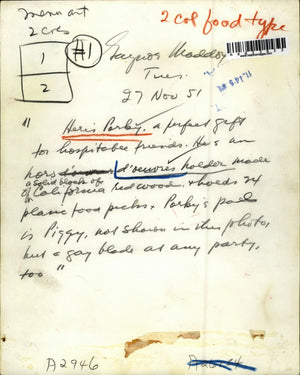 menu art
2 cols
1
2
#1
2 col food type
Gaynor Maddox
Tues.
27 Nov 51
" Here's Porky, a perfect gift
for hospitable friends. He's an
hors d'oeuvres holder made
of a solid block of
California redwood, + holds 24
plastic food picks. Porky's pal
is Piggy, not shown in this photo,
but a gay blade at any party,
too "
A2946